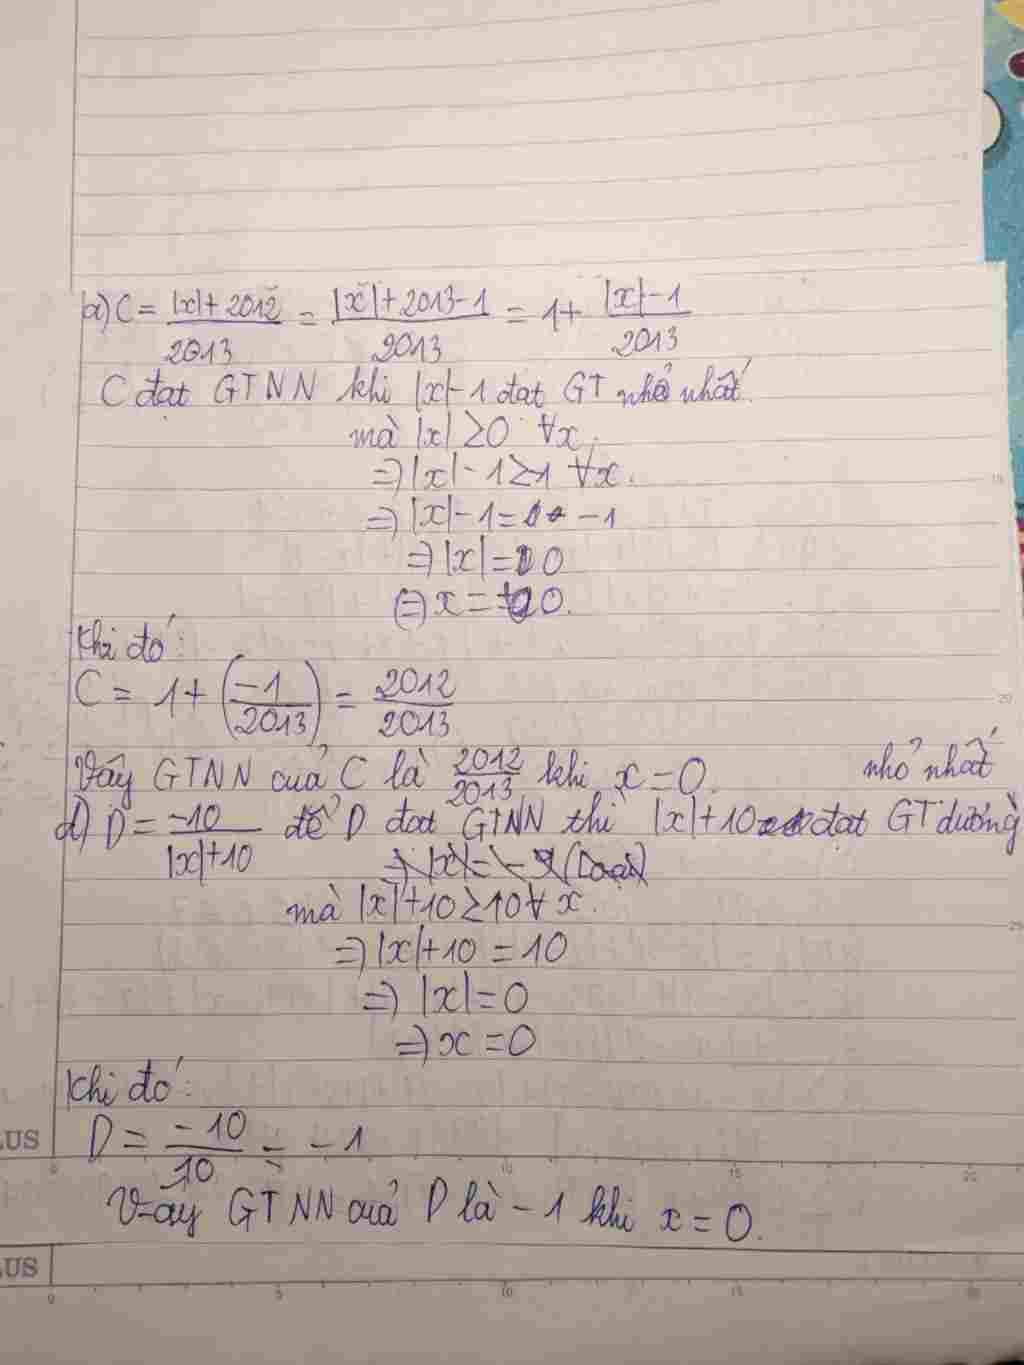 a) C = |x| + 2012 / 2013 = |x| + 2013 - 1 / 2013 = 1 + |x| - 1 / 2013
C đạt GTNN khi |x| - 1 đạt GT nhỏ nhất.
mà |x| ≥ 0 ∀x.
=> |x| - 1 ≥ 1 ∀x.
=> |x| - 1 = -1
=> |x| = 0
(=) x = 0.
Khi đó:
C = 1 + (-1 / 2013) = 2012 / 2013
Vậy GTNN của C là 2012 / 2013 khi x = 0.
nhỏ nhất
d) D = -10 / |x| + 10 để D đạt GTNN thì |x| + 10 đạt GT dương
mà |x| + 10 ≥ 10 ∀ x.
=> |x| + 10 = 10
=> |x| = 0
=> x = 0
Khi đó:
D = -10 / 10 = -1
Vậy GTNN của D là -1 khi x = 0.
US
0 5 10 15 20
US
0 5 10 15 20